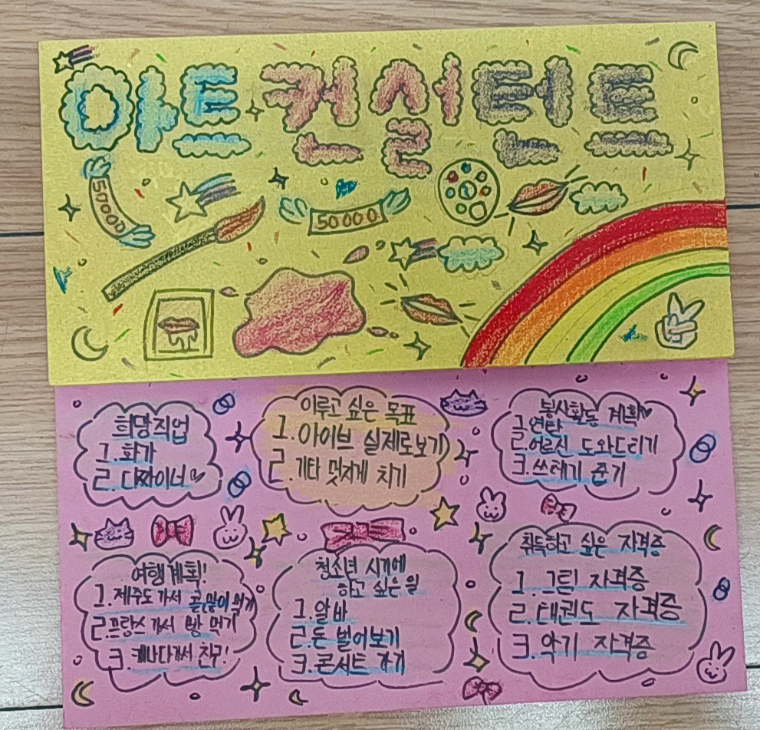 아트 컨설턴트
50000
50000
희망직업
1. 화가
2. 디자이너♡
이루고 싶은 목표
1. 아이브 실제로보기
2. 기타 멋지게 치기
봉사활동 계획♡
1. 연탄
2. 어르신 도와드리기
3. 쓰레기 줍기
여행계획!
1. 제주도 가서 귤 많이 먹기
2. 프랑스 가서 빵 먹기
3. 캐나다가서 친구!
청소년 시기에
하고 싶은 일
1. 알바
2. 돈 벌어보기
3. 콘서트 가기
취득하고 싶은 자격증
1. 그림 자격증
2. 태권도 자격증
3. 악기 자격증